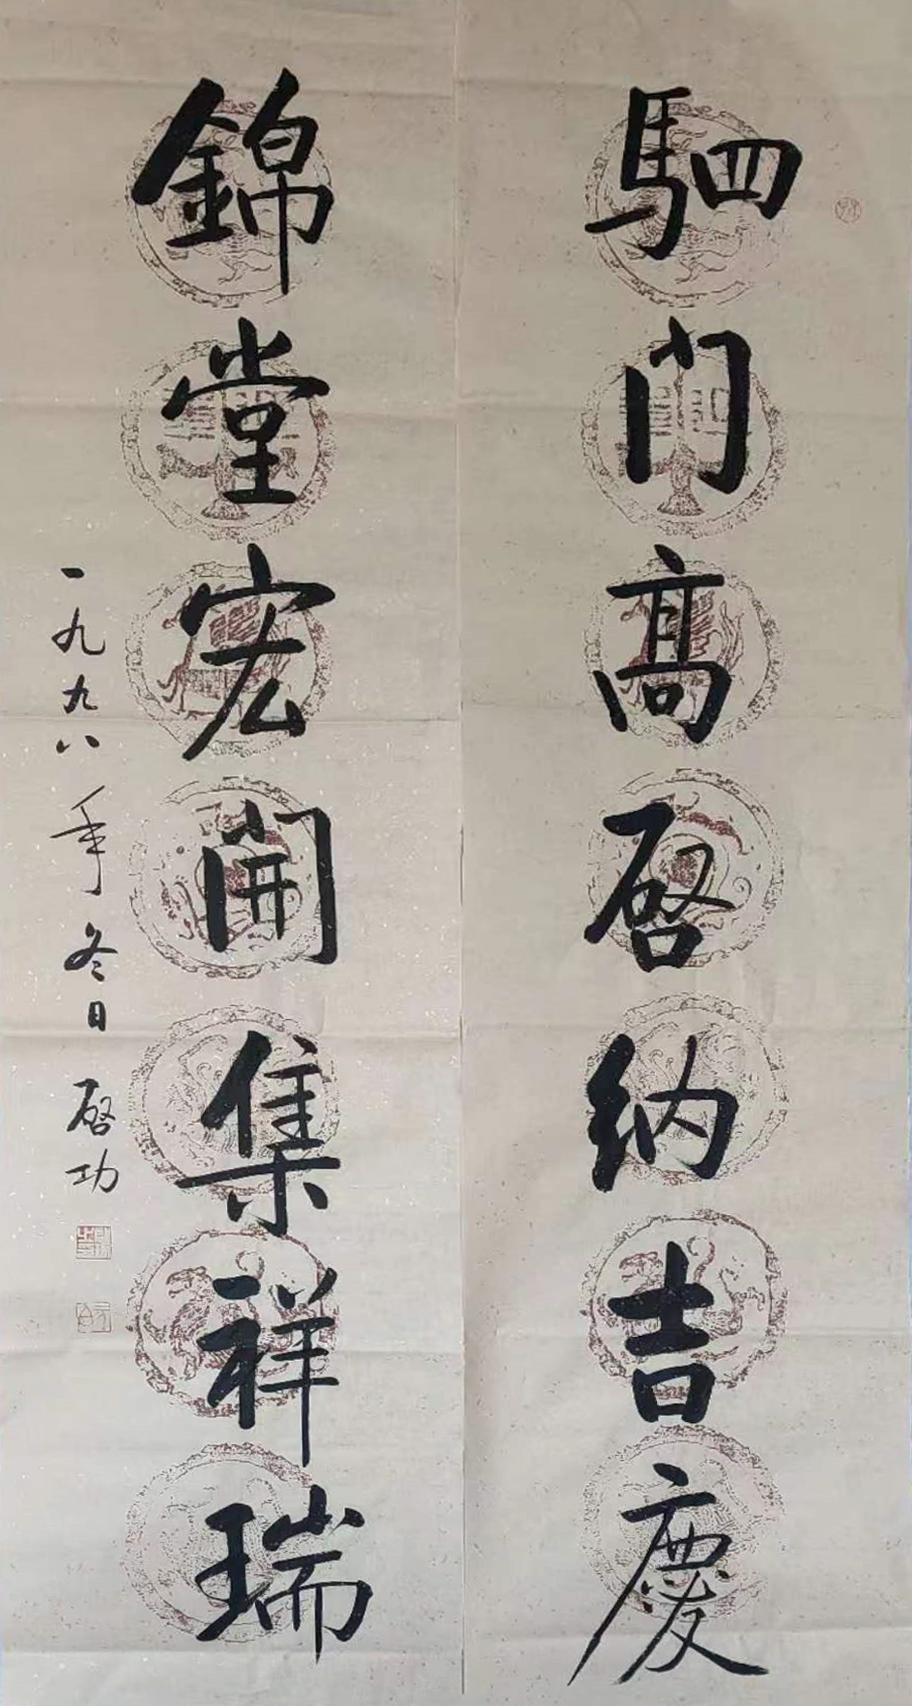 駟門髙啓納吉慶
錦堂宏開集祥瑞
一九九八年冬日 啓功